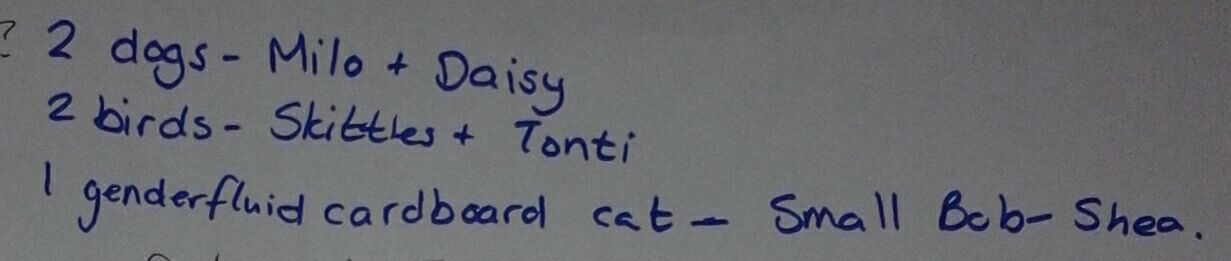 ? 2 dogs - Milo + Daisy
2 birds - Skittles + Tonti
1 genderfluid cardboard cat - Small Bob-Shea.